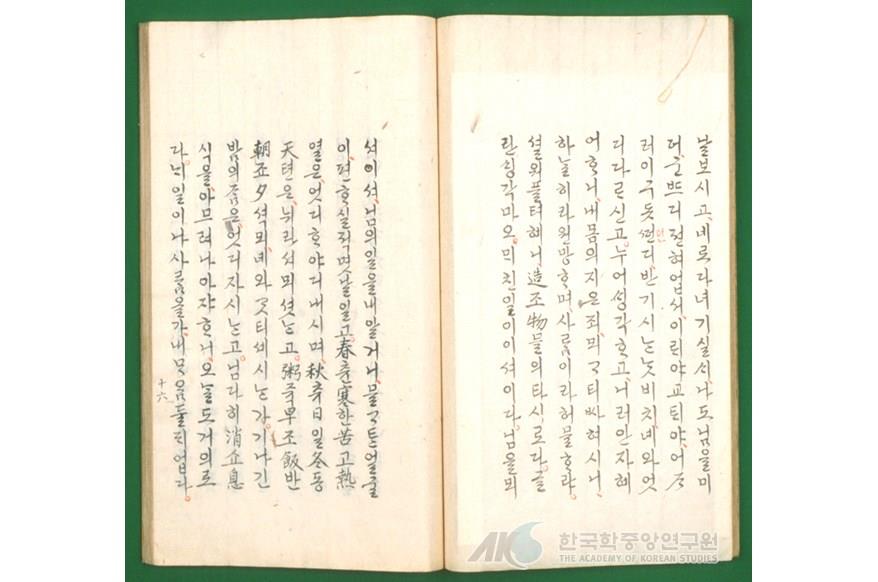 날보시고녜로다녀기실ᄉᆡ나도님을미
더군ᄠᅳ디전혀업서이ᄅᆡ야교ᄐᆡ야어ᄌᆞ
러이구돗ᄯᅥᆫ디반기시ᄂᆞᆫᄂᆞᆺ비치녜와엇
디다ᄅᆞ신고누어ᄉᆡᆼ각ᄒᆞ고니러안자혜
여ᄒᆞ니내몸의지은죄뫼ᄀᆞ티ᄡᅡ혀시니
하ᄂᆞᆯ히라원망ᄒᆞ며사ᄅᆞᆷ이라허믈ᄒᆞ랴
셜워플텨혜니造조物믈의타시로다글
란ᄉᆡᆼ각마오ᄆᆡ친일이이셔이다님을뫼
셔이셔님의일을내알거니믈ᄀᆞᄐᆞᆫ얼굴
이편ᄒᆞ실적몃날일고春츈寒한苦고熱
열은엇디ᄒᆞ야디내시며秋츄日일冬동
天텬은뉘라셔뫼셧ᄂᆞᆫ고粥쥭早조飯반
朝죠夕셕뫼녜와ᄀᆞ티셰시ᄂᆞᆫ가기나긴
밤의ᄌᆞᆷ은엇디자시ᄂᆞᆫ고님다히消쇼息
식을아므려나아쟈ᄒᆞ니오ᄂᆞᆯ도거의로
다ᄂᆡ일이나사ᄅᆞᆷ올가내ᄆᆞᄋᆞᆷ둘ᄃᆡ업다
十六
AKS 한국학중앙연구원
THE ACADEMY OF KOREAN STUDIES